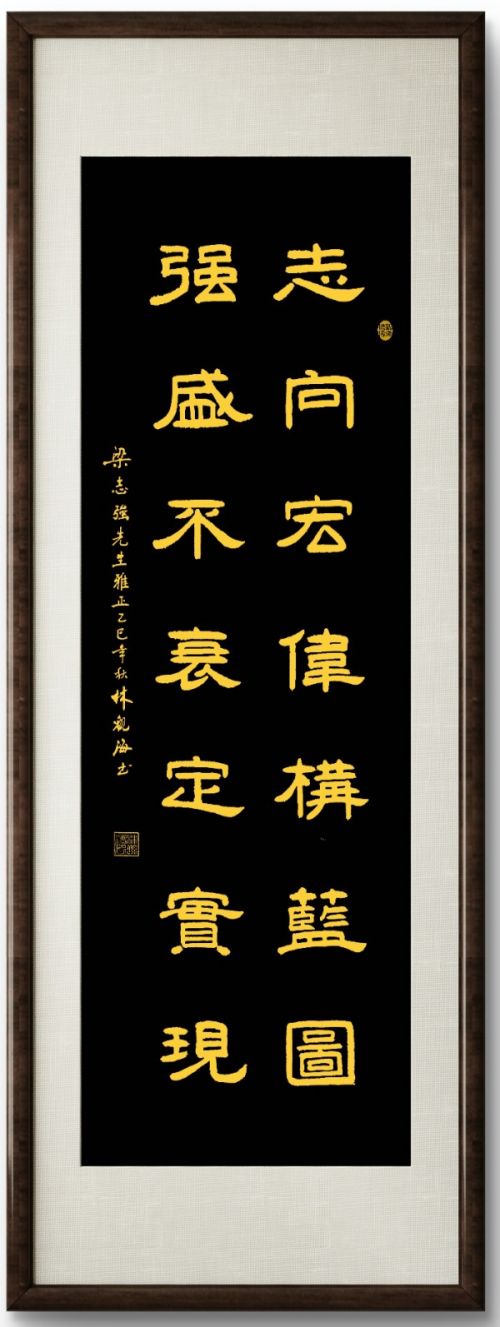 志向宏偉構藍圖
强盛不衰定實現
梁志强先生雅正乙巳年秋林观海书